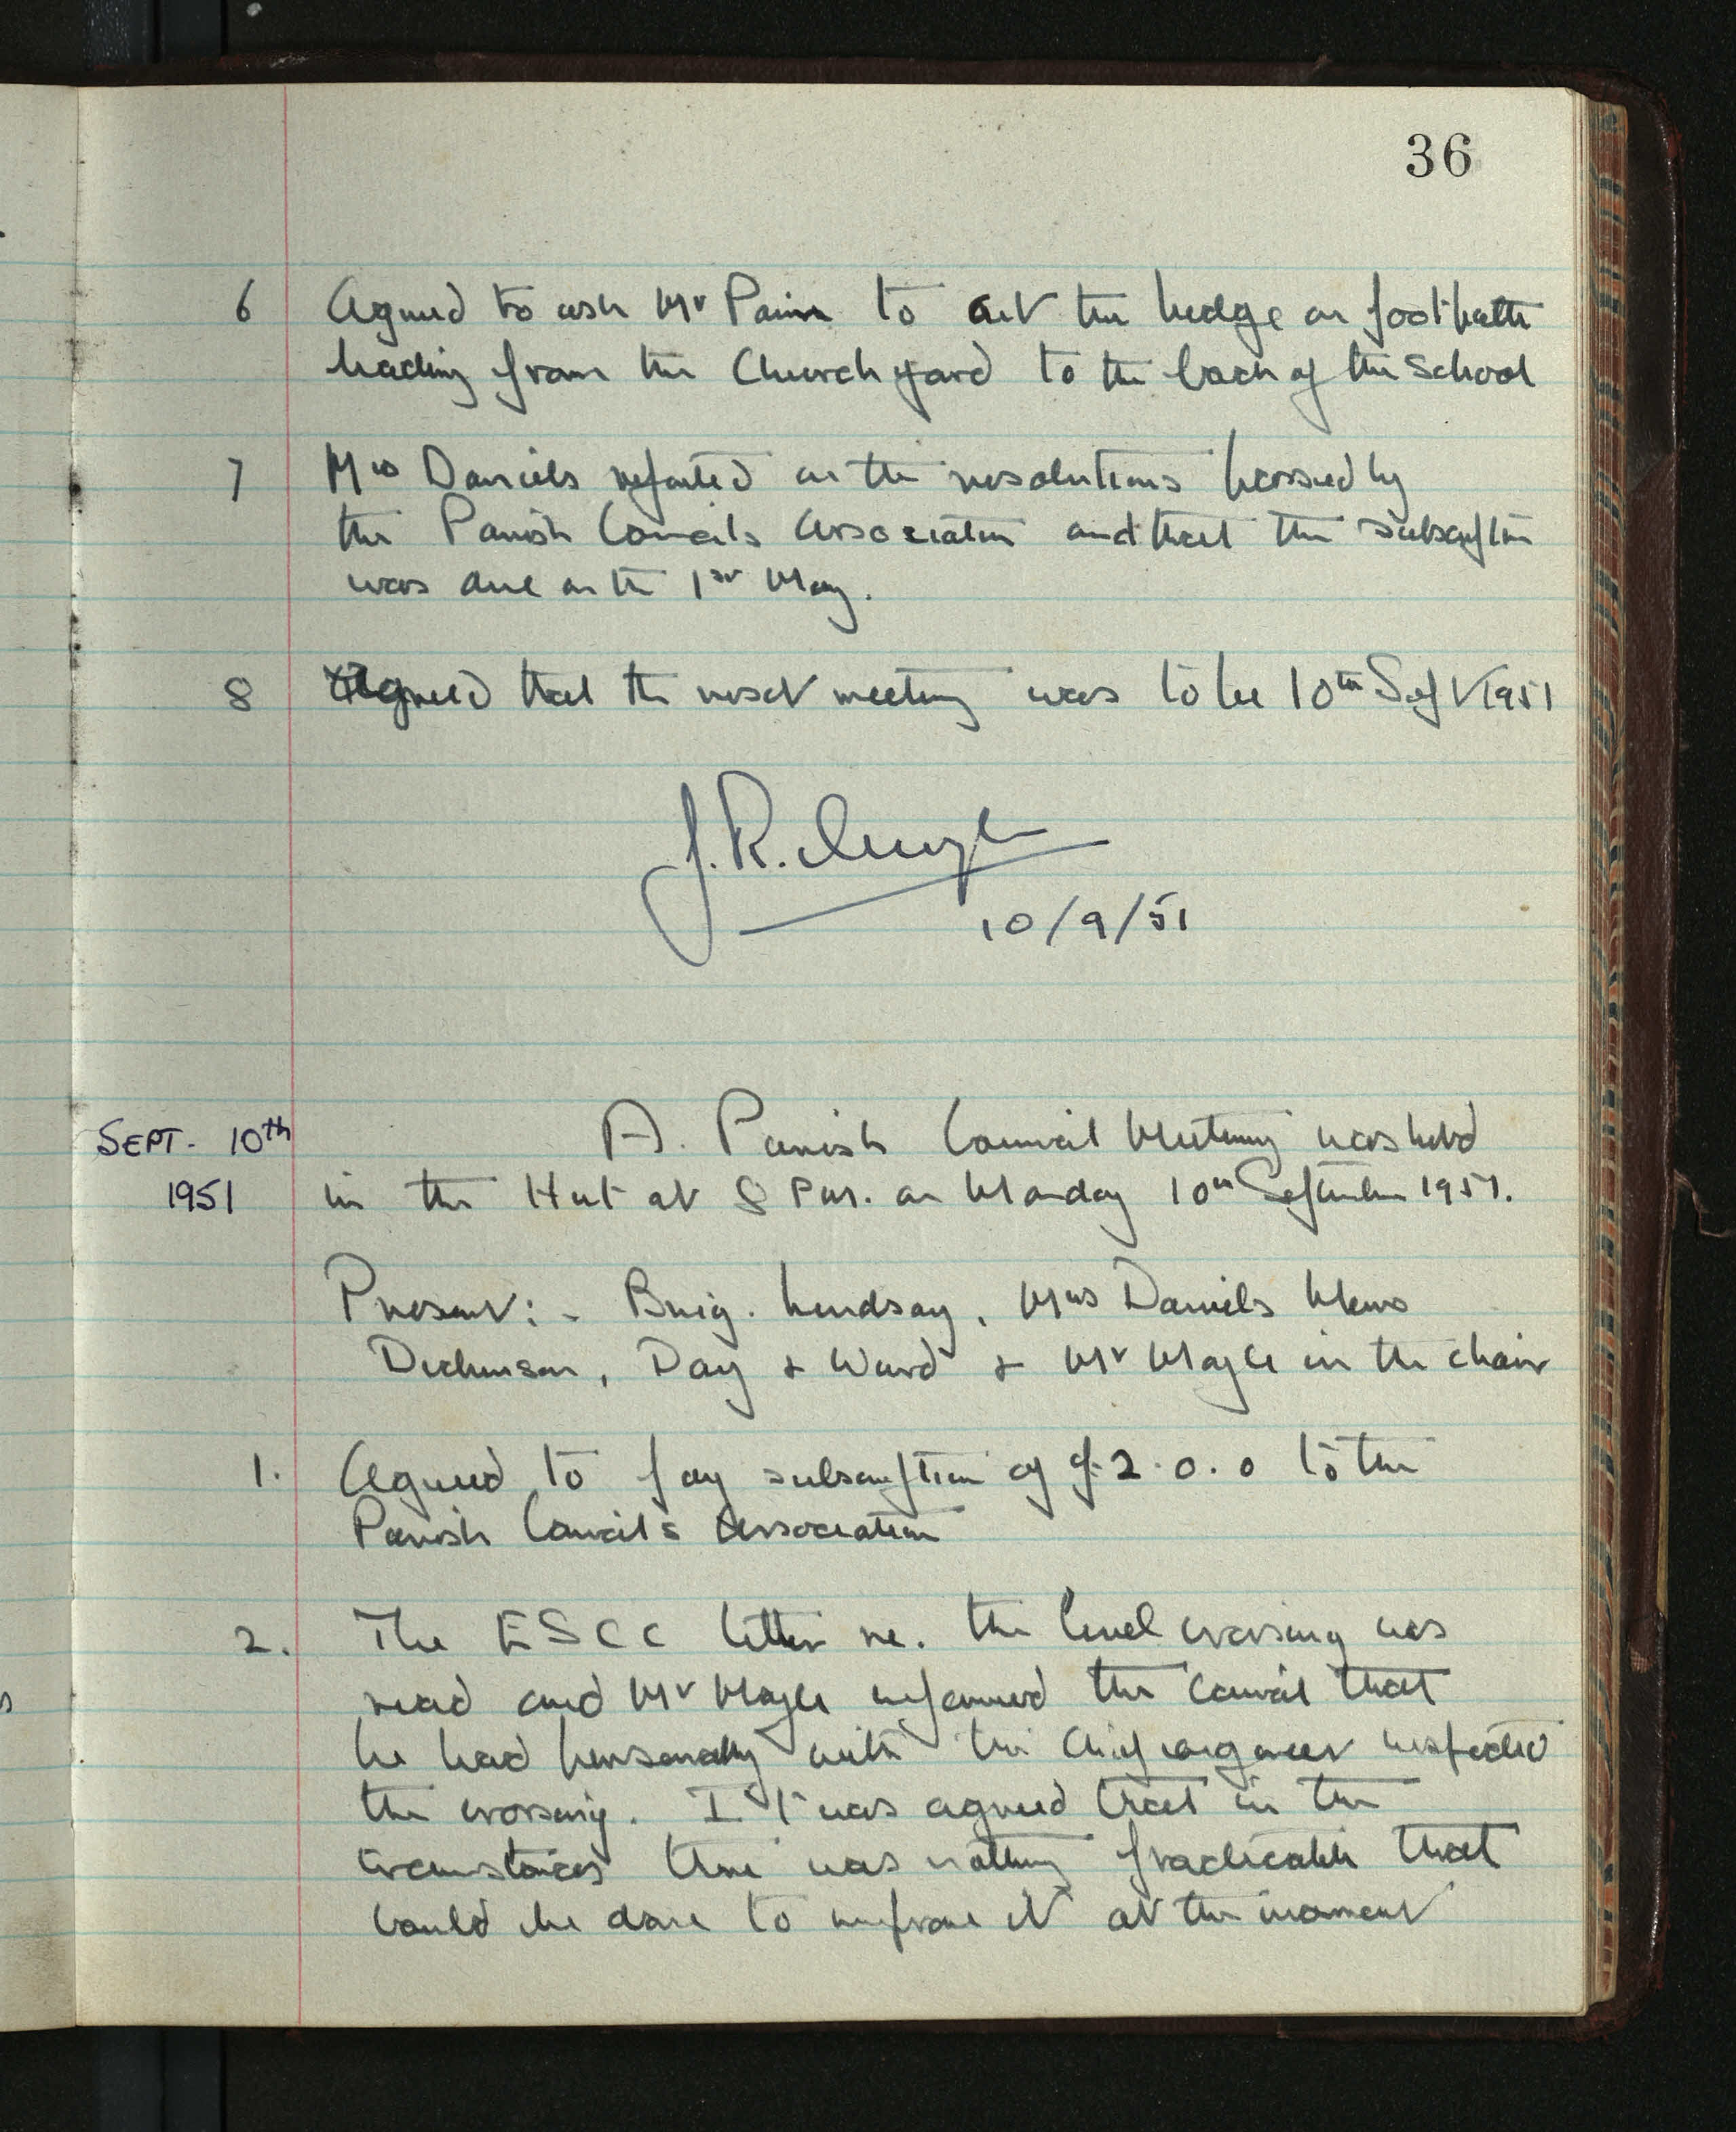 36
6 Agreed to ask Mr Pain to cut the hedge on footpath
leading from the Churchyard to the back of the School
7 Mrs Daniels reported on the resolutions passed by
the Parish Councils Association and that the subscription
was due on the 1st May.
8 Agreed that the next meeting was to be 10th Sept 1951
J. R.
10/9/51
SEPT. 10th A. Parish Council Meeting was held
1951 in the Hut at 8 P.m. on Monday 10th September 1951.
Present: - Brig. Lindsay, Mrs Daniels Messrs
Dickinson, Day + Ward + Mr Mayle in the chair
1. Agreed to pay subscription of £2.0.0 to the
Parish Councils Association
2. The ESCC letter re. the level crossing was
read and Mr Mayle informed the Council that
he had personally with the Chief engineer inspected
the crossing. It was agreed that in the
circumstances there was nothing practicable that
could be done to improve it at the moment